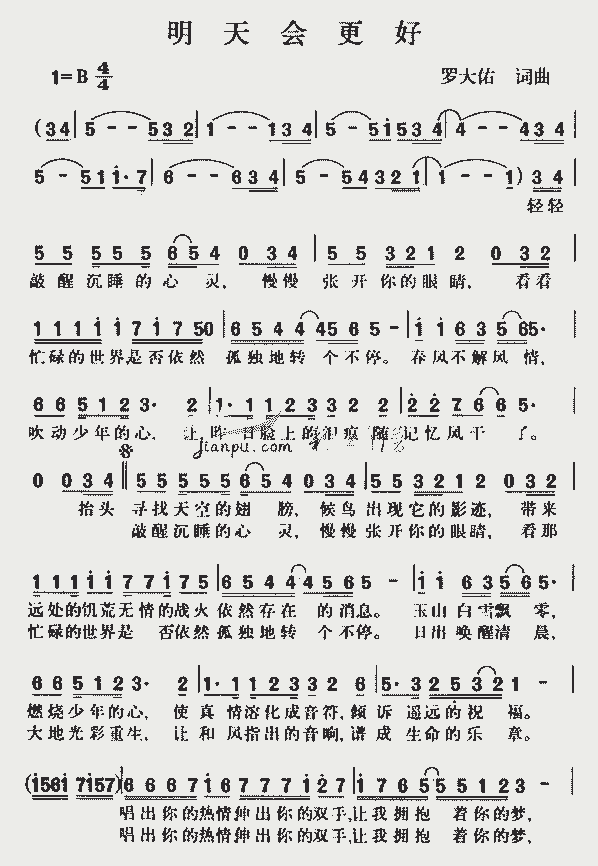 明天会更好
1=B 4/4 罗大佑 词曲
(34 | 5 - - 532 | 1 - - 134 | 5 - 51534 | 4 - - 434 |
5 - 511·7 | 6 - - 634 | 5 - 54321 | 1 - - 1) 34 |
轻轻
55 555 654 0 34 | 55 321 2 0 32 |
敲醒沉睡的心灵, 慢慢张开你的眼睛, 看看
1111 17 1750 | 6544 4565 - | 11 63 565· |
忙碌的世界是否依然 孤独地转 个不停。 春风不解风 情,
66 512 3· 2 | 1·1123 32 2 | 22766 5· |
吹动少年的心, 让 昨日脸上的泪痕 随 记忆风干 了。
jianpu.com
0 0 34 || 555555 654 034 | 553212 032 |
抬头 寻找天空的翅 膀, 候鸟出现它的影迹, 带来
敲醒沉睡的心 灵, 慢慢张开你的眼睛, 看那
11111 77175 | 6544 4565 - | 11 63565· |
远处的饥荒无情的战火依然存在 的消息。 玉山白雪飘 零,
忙碌的世界是 否依然孤独地转 个不停。 日出唤醒清 晨,
66 512 3· 2 | 1·1123 32 6 | 5·325321 - |
燃烧少年的心, 使真 情溶化成音符,倾诉 遥远的祝 福。
大地光彩重生, 让和 风指出的音响,谱成 生命的乐 章。
(1561 7157) | 666716 777127 | 1765 55123 - |
唱出你的热情伸出你的双手,让我拥抱 着你的梦,
唱出你的热情伸出你的双手,让我拥抱 着你的梦,